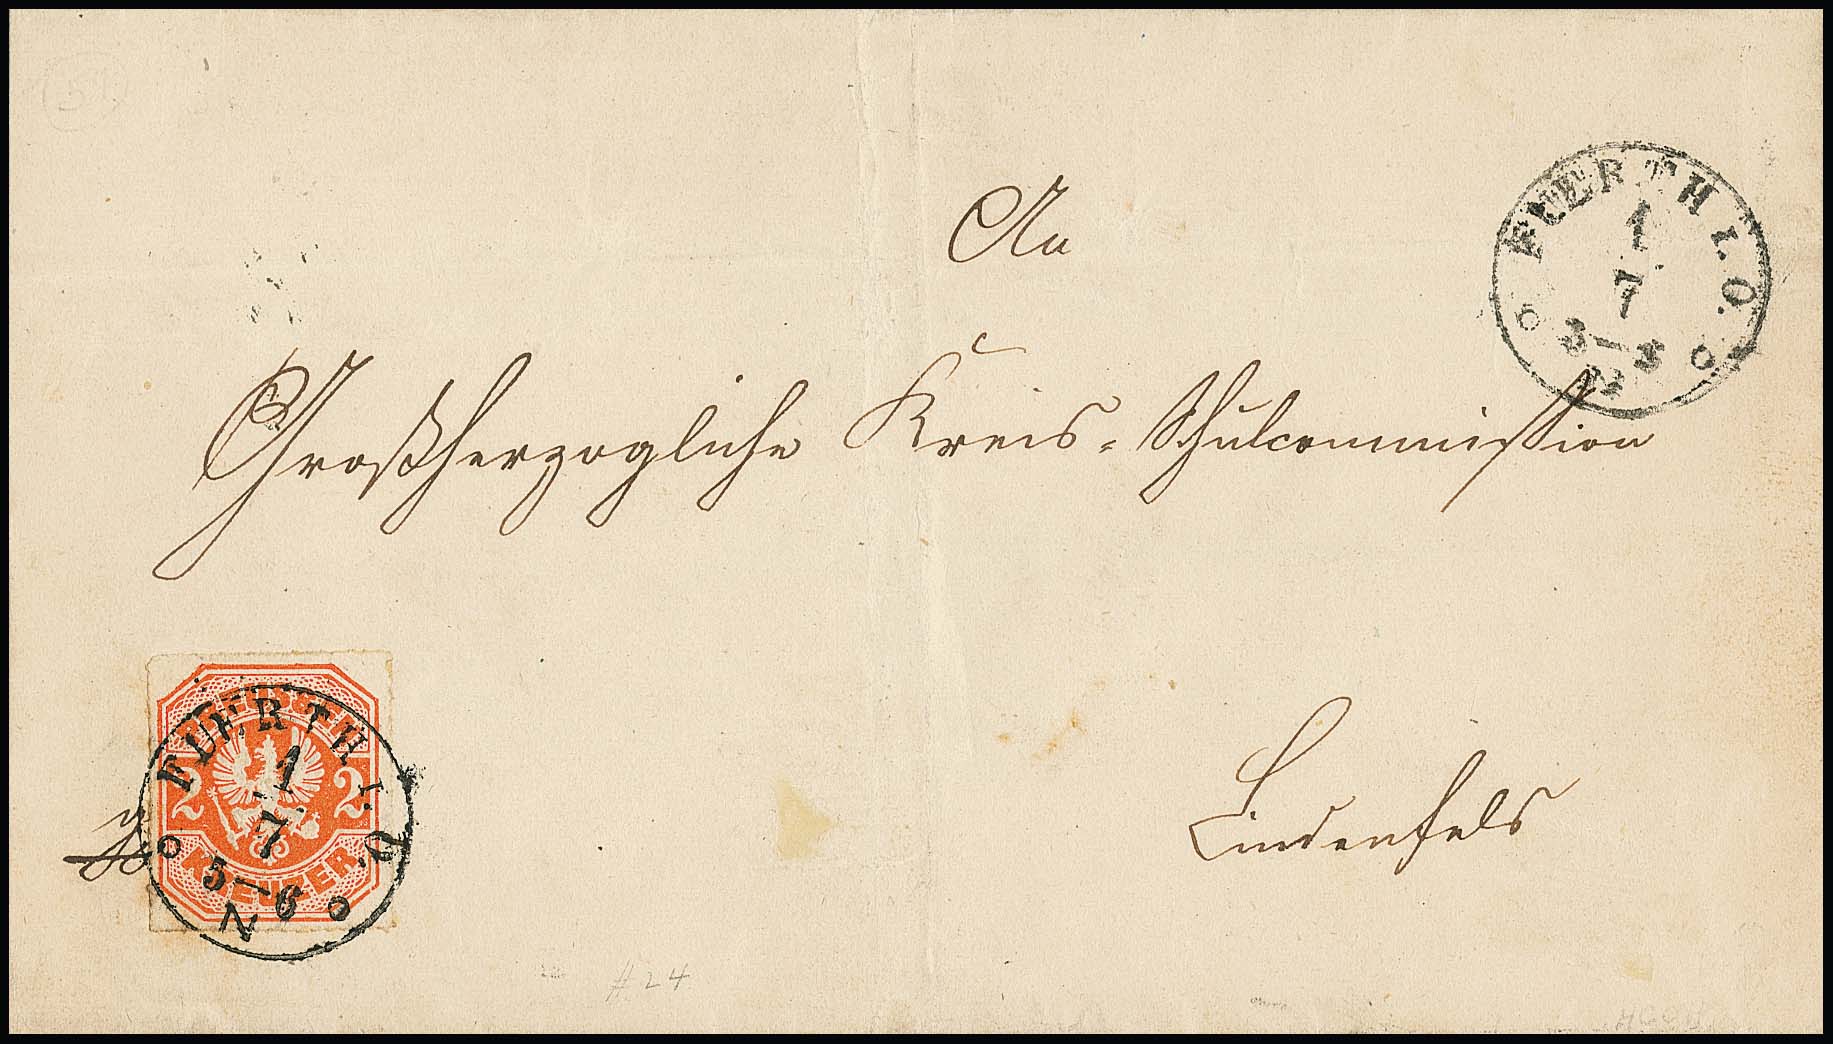 FUERTH I. O.
1
7
5—6
N
An
Großherzogliche Kreis-Schulcommission
Lindenfels
PREUSSEN
2 2
KREUZER
FUERTH I. O.
1
7
5—6
N
#24